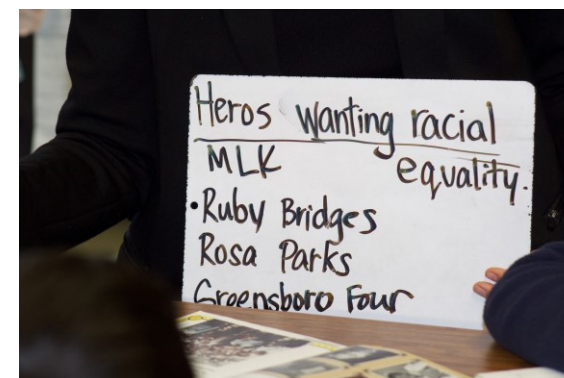 Heros wanting racial
equality.
MLK
• Ruby Bridges
Rosa Parks
Greensboro Four